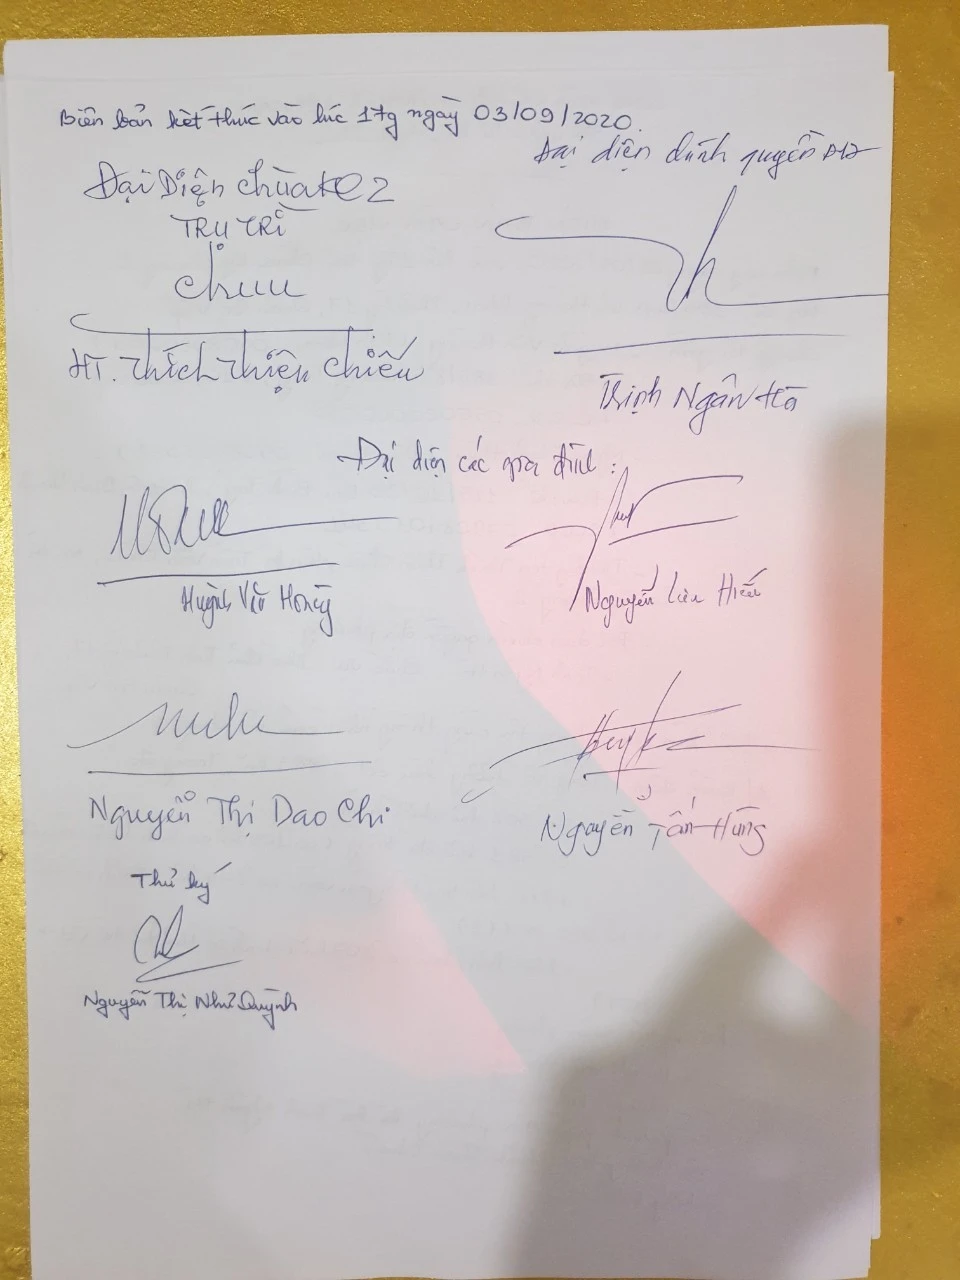 Biên bản kết thúc vào lúc 17g ngày 03/09/2020.
Đại Diện chùa KQ2
TRỤ TRÌ
HT. Thích Thiện Chiếu
Đại diện chính quyền ĐP
Trịnh Ngân Hà
Đại diện các gia đình:
Huỳnh Vũ Hoàng
Nguyễn Lưu Hiếu
Nguyễn Thị Dao Chi
Nguyễn Tấn Hùng
Thư ký
Nguyễn Thị Như Quỳnh